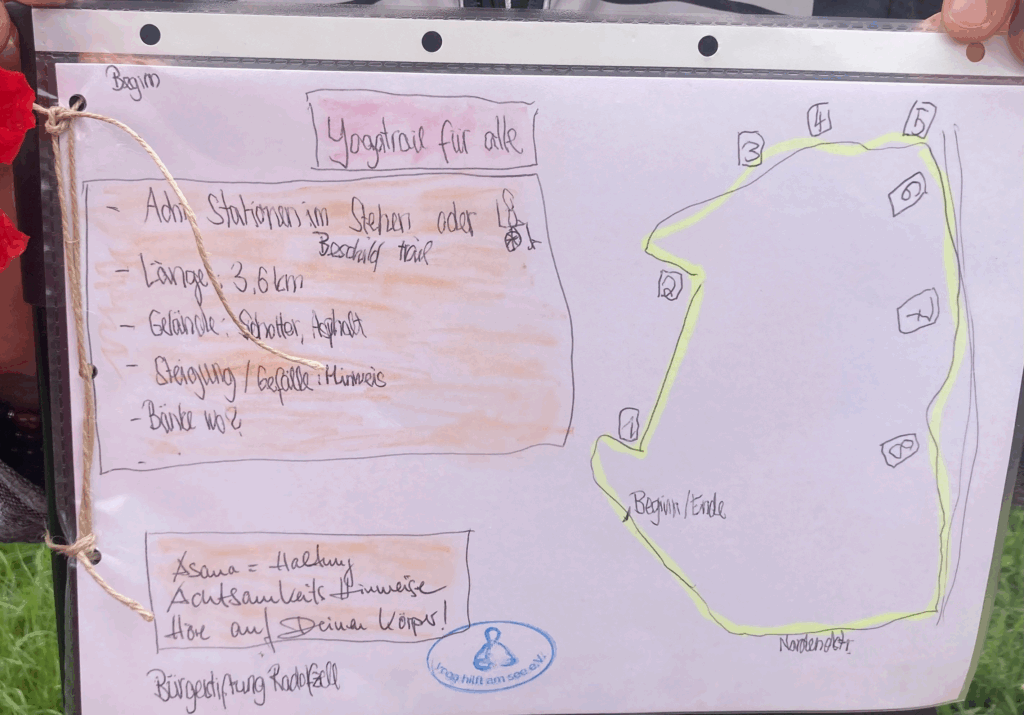 Beginn
Yogatrail für alle
- Acht Stationen im Stehen oder
Beschild trail
- Länge: 3,6 km
- Gelände: Schotter, Asphalt
- Steigung/Gefälle: Hinweis
- Bänke wo?
-
Asana = Haltung
Achtsamkeits Hinweise
Höre auf Deinen Körper!
Bürgerstiftung Radolfzell
Yoga hilft am see e.V.
3
4
5
6
2
7
1
8
Beginn/Ende